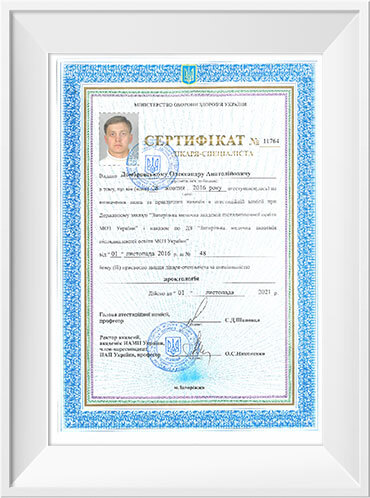 МІНІСТЕРСТВО ОХОРОНИ ЗДОРОВ'Я УКРАЇНИ
СЕРТИФІКАТ № 11764
ЛІКАРЯ-СПЕЦІАЛІСТА
Виданий Олександру Анатолійовичу
в тому, що він (вона) жовтня 2016 року
визначення знань та практичних навичок в атестаційній комісії при
Державному закладі "Запорізька медична академія післядипломної освіти
МОЗ України" і наказом по ДЗ "Запорізька медична академія
післядипломної освіти МОЗ України"
від "01" листопада 2016 р. № 48
йому (їй) присвоєно звання лікаря-спеціаліста за спеціальністю
проктологія
Дійсно до "01" листопада 2021 р.
Голова атестаційної комісії,
професор С.Д.
Ректор академії,
академік НАМН України,
член-кореспондент
НАП України, професор О.С.Никоненко
м.Запоріжжя